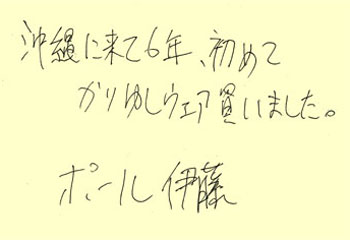 沖縄に来て6年、初めて
かりゆしウェア買いました。
ポール伊藤